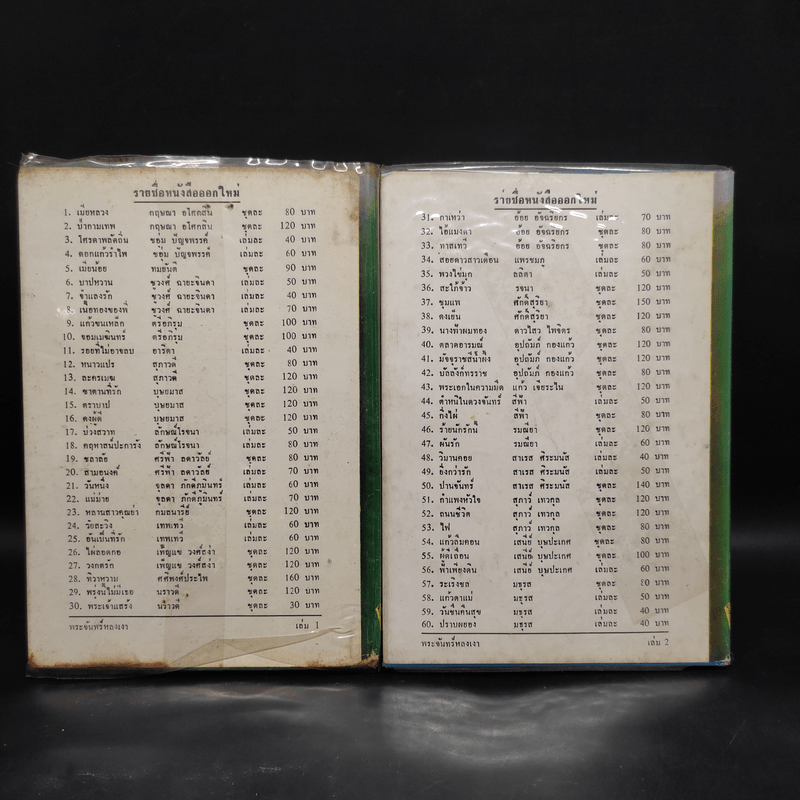 รายชื่อหนังสือออกใหม่
1. เมียหลวง กฤษณา อโศกสิน ชุดละ 80 บาท
2. ป่ากามเทพ กฤษณา อโศกสิน ชุดละ 120 บาท
3. โศรดาพลัดถิ่น ชอุ่ม ปัญจพรรค์ เล่มละ 40 บาท
4. ดอกแก้วรำไพ ชอุ่ม ปัญจพรรค์ เล่มละ 60 บาท
5. เมียน้อย ทมยันตี ชุดละ 90 บาท
6. บาปหวาน ชูวงศ์ ฉายะจินดา เล่มละ 50 บาท
7. จำเลยรัก ชูวงศ์ ฉายะจินดา เล่มละ 40 บาท
8. เนื้อทองของพี่ ชูวงศ์ ฉายะจินดา เล่มละ 70 บาท
9. แก้วขนเหล็ก ตรีอภิรุม ชุดละ 100 บาท
10. จอมเมฆินทร์ ตรีอภิรุม ชุดละ 100 บาท
11. รอยที่ไม่อาจลบ อาริตา เล่มละ 40 บาท
12. หนาวแปร สุภาวดี ชุดละ 80 บาท
13. ละครเมฆ สุภาวดี ชุดละ 120 บาท
14. ซาตานที่รัก บุษยมาส ชุดละ 120 บาท
15. ตราบาป บุษยมาส ชุดละ 120 บาท
16. ดงผู้ดี บุษยมาส ชุดละ 120 บาท
17. บ่วงสวาท ลักษณ์โรจนา เล่มละ 50 บาท
18. คฤหาสน์ปะการัง ลักษณ์โรจนา เล่มละ 80 บาท
19. ชลาลัย ศรีฟ้า ลดาวัลย์ ชุดละ 80 บาท
20. สามอนงค์ ศรีฟ้า ลดาวัลย์ เล่มละ 70 บาท
21. วันหนึ่ง จุลดา ภักดีภูมินทร์ เล่มละ 60 บาท
22. แม่ม่าย จุลดา ภักดีภูมินทร์ เล่มละ 70 บาท
23. หลานสาวคุณย่า คมลนารีธิ์ ชุดละ 120 บาท
24. วัยละเวง เทพเทวี เล่มละ 60 บาท
25. อันเป็นที่รัก เทพเทวี เล่มละ 60 บาท
26. ไผ่ลอดกอ เพ็ญแข วงศ์สง่า ชุดละ 120 บาท
27. วงกตรัก เพ็ญแข วงศ์สง่า ชุดละ 120 บาท
28. ทิวาหวาม ศศิพงศ์ประไพ ชุดละ 160 บาท
29. พรุ่งนี้ไม่มีเธอ นราวดี ชุดละ 120 บาท
30. พระเจ้าแสร้ง นราวดี ชุดละ 30 บาท
พระจันทร์หลงเงา เล่ม 1
รายชื่อหนังสือออกใหม่
31. กาเหว่า อ้อย อัจฉริยกร เล่มละ 70 บาท
32. ไอ้แมงดา อ้อย อัจฉริยกร ชุดละ 80 บาท
33. ทาสเทวี อ้อย อัจฉริยกร ชุดละ 80 บาท
34. สอยดาวสาวเดือน แพรชมภู เล่มละ 60 บาท
35. พวงไข่มุก ลลิตา เล่มละ 50 บาท
36. สะใภ้จ้าว รจนา ชุดละ 120 บาท
37. ขุมแพ ศักดิ์สุริยา ชุดละ 150 บาท
38. ดงเย็น ศักดิ์สุริยา ชุดละ 120 บาท
39. นางฟ้าผมทอง ดาวใสว ไพจิตร ชุดละ 80 บาท
40. ตลาดอารมณ์ อุปถัมภ์ กองแก้ว ชุดละ 120 บาท
41. มัจจุราชสีน้ำผึ้ง อุปถัมภ์ กองแก้ว ชุดละ 80 บาท
42. บัลลังก์ทรราช อุปถัมภ์ กองแก้ว ชุดละ 80 บาท
43. พระเอกในความมืด แก้ว เจียระไน ชุดละ 120 บาท
44. ตำหนิในดวงจันทร์ สีฟ้า เล่มละ 50 บาท
45. กิ่งไผ่ สีฟ้า ชุดละ 80 บาท
46. ร้ายนักรักนี้ รมณียา ชุดละ 120 บาท
47. ผันรัก รมณียา เล่มละ 60 บาท
48. วิมานคอย สาเรส ศิระมนัส เล่มละ 40 บาท
49. ยิ่งกว่ารัก สาเรส ศิระมนัส เล่มละ 50 บาท
50. ปานจันทร์ สาเรส ศิระมนัส ชุดละ 140 บาท
51. กำแพงหัวใจ สุภาว์ เทวกุล ชุดละ 120 บาท
52. ถนนชีวิต สุภาว์ เทวกุล ชุดละ 120 บาท
53. ไฟ สุภาว์ เทวกุล ชุดละ 80 บาท
54. แก้วลืมคอน เสนีย์ บุษปะเกศ ชุดละ 80 บาท
55. ผู้ดีเถื่อน เสนีย์ บุษปะเกศ ชุดละ 100 บาท
56. ฟ้าเพียงดิน เสนีย์ บุษปะเกศ เล่มละ 60 บาท
57. ระเริงชล มธุรส ชุดละ 80 บาท
58. แก้วตาแม่ มธุรส เล่มละ 50 บาท
59. วันชื่นคืนสุข มธุรส เล่มละ 40 บาท
60. ปราบพยอง มธุรส เล่มละ 40 บาท
พระจันทร์หลงเงา เล่ม 2